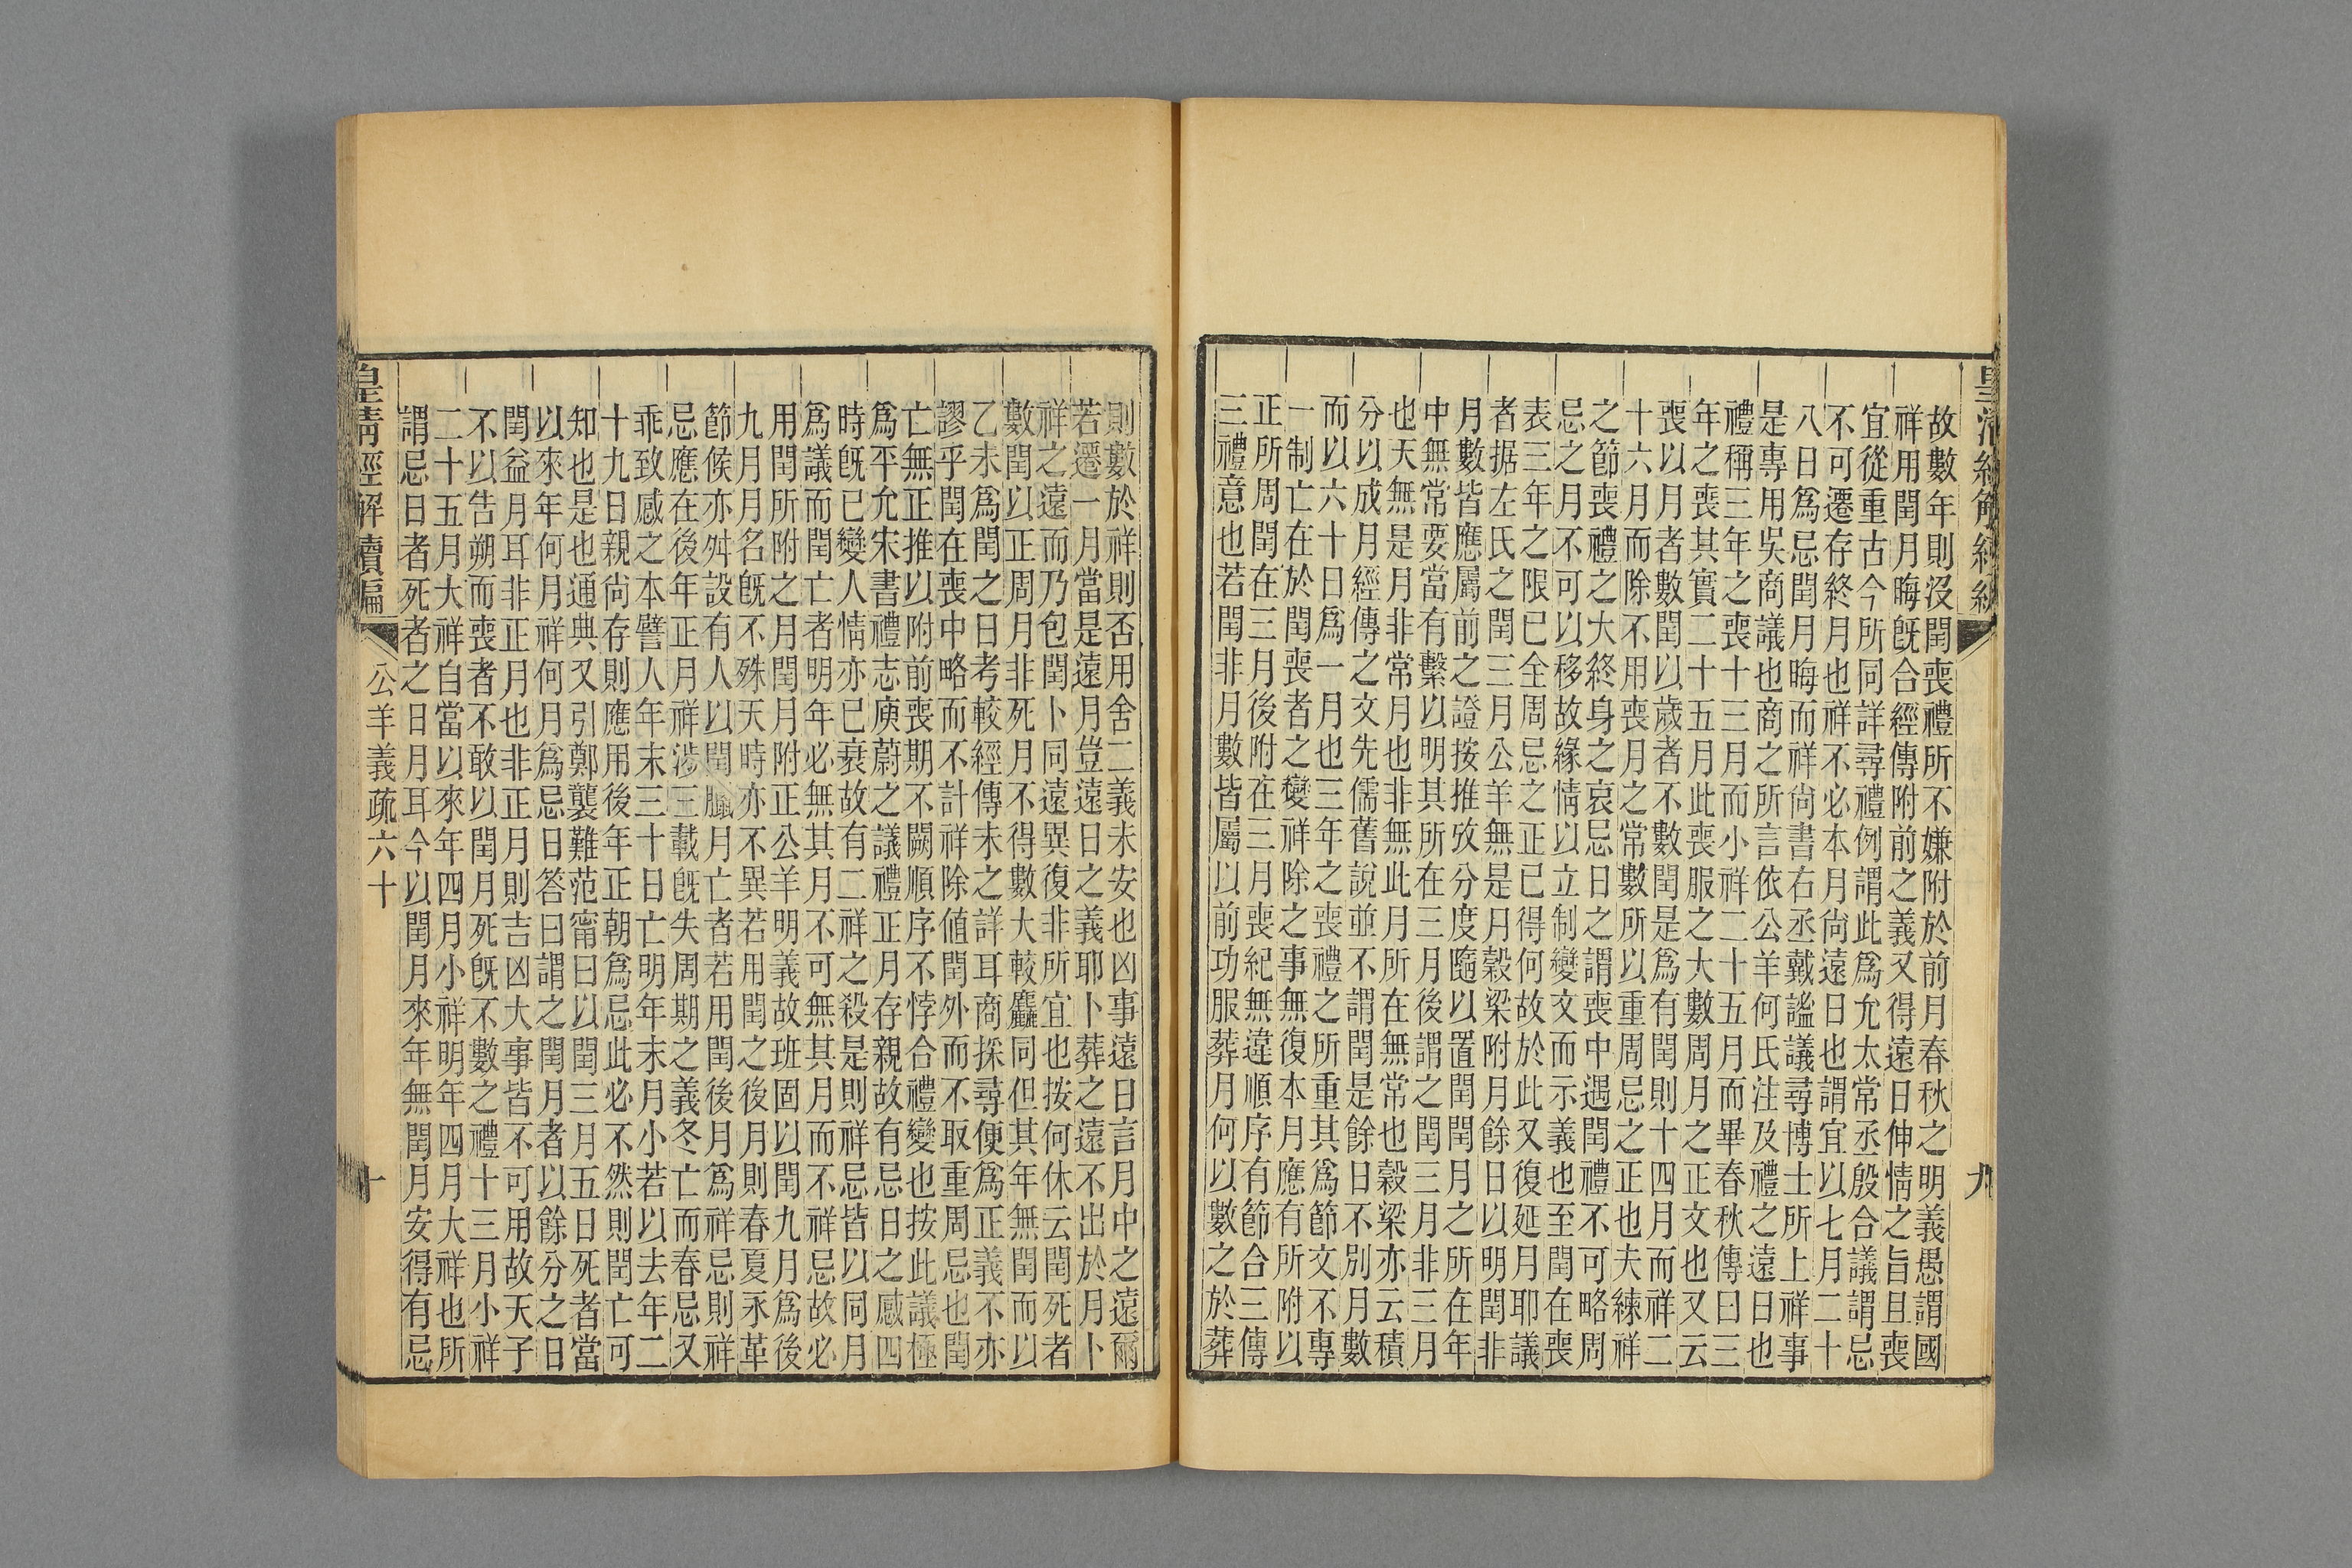 故數年則沒閏喪禮所不嫌附於前月春秋之明義愚謂國
祥用閏月晦既合經傳附前之義又得遠日伸情之旨且喪
宜從重古今所同詳尋禮例謂此爲允太常丞殷合議謂忌
不可遷存終月也祥不必本月尙遠日也謂宜以七月二十
八日爲忌閏月晦而祥尙書右丞戴謐議尋博士所上祥事
是專用吳商議也商之所言依公羊何氏注及禮之遠日也
禮稱三年之喪十三月而小祥二十五月而畢春秋傳曰三
年之喪其實二十五月此喪服之大數周月之正文也又云
喪以月者數閏以歲者不數閏是爲有閏則十四月而祥二
十六月而除不用喪月之常數所以重周忌之正也夫練祥
之節喪禮之大終身之哀忌日之謂喪中遇閏禮不可略周
忌之月不可以移故緣情以立制變文而示義也至閏在喪
表三年之限已全周忌之正已得何故於此又復延月耶議
者据左氏之閏三月公羊無是月穀梁附月餘日以明閏非
月數皆應屬前之證按推攷分度隨以置閏閏月之所在年
中無常要當有繫以明其所在三月後謂之閏三月非三月
也天無是月非常月也非無此月所在無常也穀梁亦云積
分以成月經傳之文先儒舊說並不謂閏是餘日不別月數
而以六十日爲一月也三年之喪禮之所重其爲節文不專
一制亡在於閏喪者之變祥除之事無復本月應有所附以
正所周閏在三月後附在三月喪紀無違順序有節合三傳
三禮意也若閏非月數皆屬以前功服葬月何以數之於葬
則數於祥則否用舍二義未安也凶事遠日言月中之遠爾
若遷一月當是遠月豈遠日之義耶卜葬之遠不出於月卜
祥之遠而乃包閏卜同遠異復非所宜也按何休云閏死者
數閏以正周月非死月不得數大較麤同但其年無閏而以
乙未爲閏之日考較經傳未之詳耳商採尋便爲正義不亦
謬乎閏在喪中略而不計祥除値閏外而不取重周忌也閏
亡無正推以附前喪期不闕順序不悖合禮變也按此議極
爲平允宋書禮志庾蔚之議禮正月存親故有忌日之感四
時既已變人情亦已衰故有二祥之殺是則祥忌皆以同月
爲議而閏亡者明年必無其月不可無其月而不祥忌故必
用閏所附之月閏月附正公羊明義故班固以閏九月爲後
九月月名既不殊天時亦不異若用閏之後月則春夏永革
節候亦舛設有人以閏臘月亡者若用閏後月爲祥忌則祥
忌應在後年正月祥涉三載既失周期之義冬亡而春忌又
乖致感之本譬人年末三十日亡明年末月小若以去年二
十九日親尙存則應用後年正朝爲忌此必不然則閏亡可
知也是也通典又引鄭襲難范甯曰以閏三月五日死者當
以來年何月祥何月爲忌日答曰謂之閏月者以餘分之日
閏益月耳非正月也非正月則吉凶大事皆不可用故天子
不以告朔而喪者不敢以閏月死既不數之禮十三月小祥
二十五月大祥自當以來年四月小祥明年四月大祥也所
謂忌日者死者之日月耳今以閏月來年無閏月安得有忌
皇清經解續編
公羊義疏六十
十
九